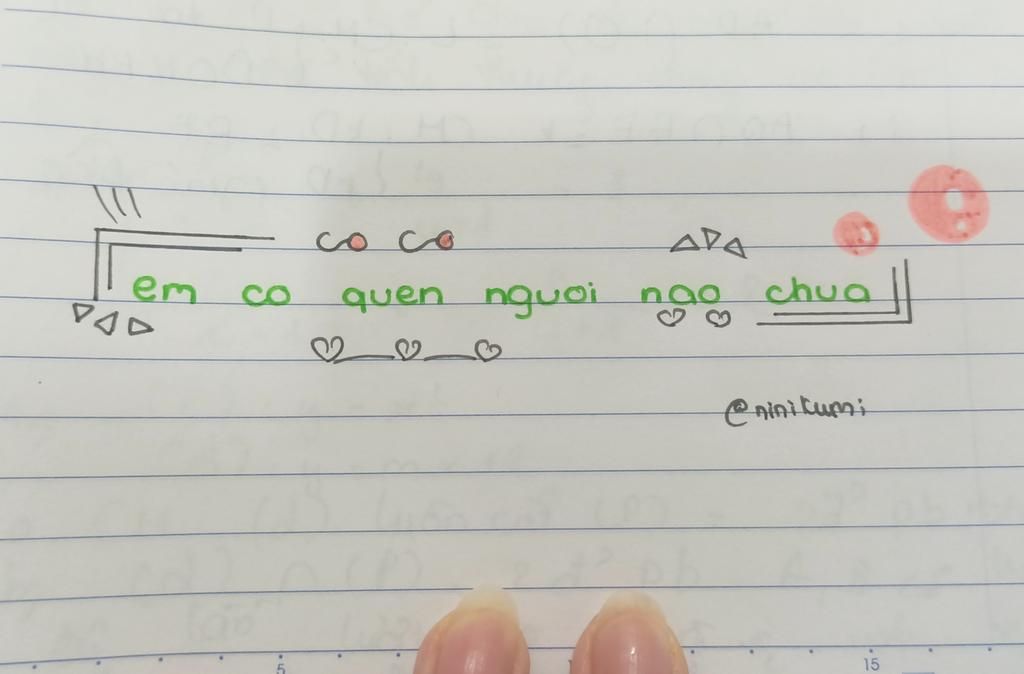 em co quen nguoi nao chua
@ninikumi
5 15